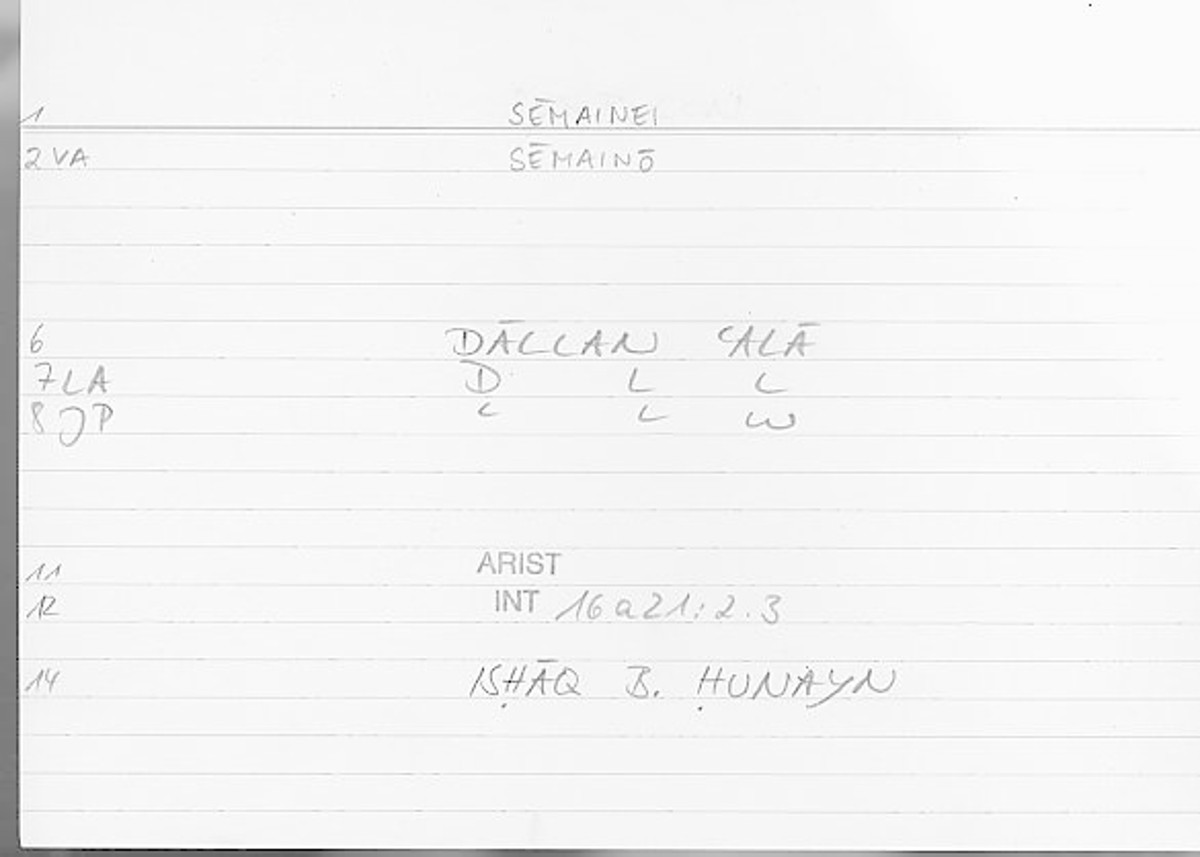 1 SĒMAINEI
2 VA SĒMAINŌ
6 DĀLLAN ʿALĀ
7 LA D L L
8 JP L L W
11 ARIST
12 INT 16a21:2.3
14 ISḤĀQ B. ḤUNAYN